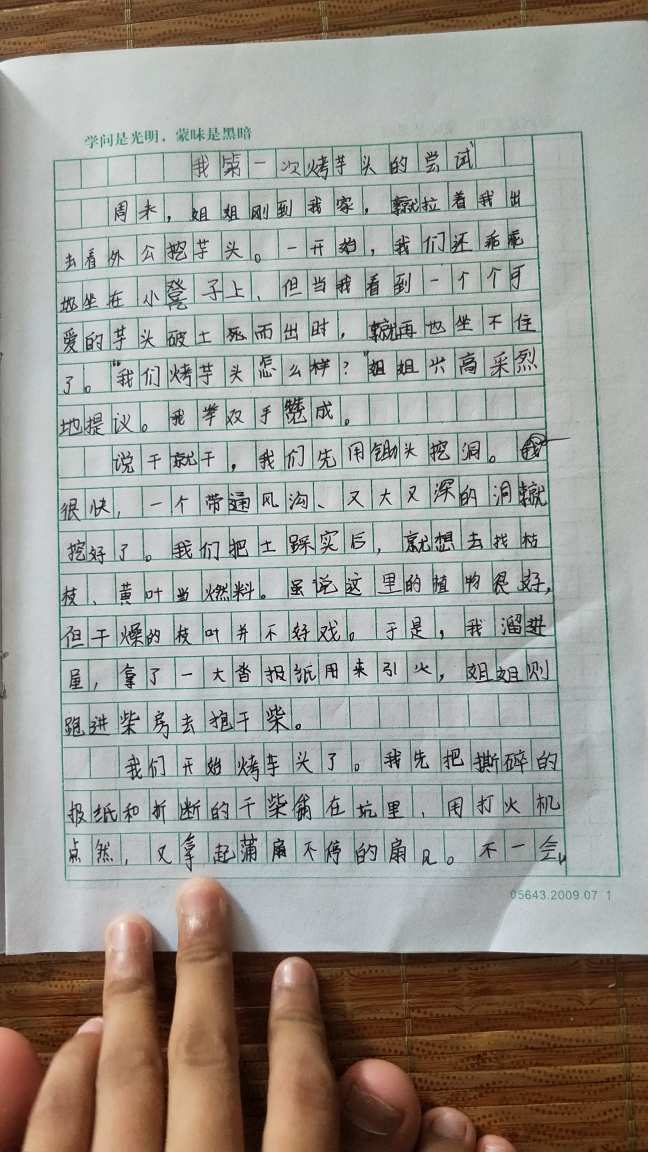 学问是光明，蒙昧是黑暗
我第一次烤芋头的尝试
周末，姐姐刚到我家，就拉着我出
去看外公挖芋头。一开始，我们还乖乖
地坐在小凳子上，但当我看到一个个可
爱的芋头破土而出时，就再也坐不住
了。“我们烤芋头怎么样？”姐姐兴高采烈
地提议。我举双手赞成。
说干就干，我们先用锄头挖洞。
很快，一个带通风沟、又大又深的洞就
挖好了。我们把土踩实后，就想去找枯
枝、黄叶当燃料。虽说这里的植物很好，
但干燥的枝叶并不好找。于是，我溜进
屋，拿了一大沓报纸用来引火，姐姐则
跑进柴房去抱干柴。
我们开始烤芋头了。我先把撕碎的
报纸和折断的干柴放在坑里，用打火机
点然，又拿起蒲扇不停的扇风。不一会儿
05643.2009.07 1